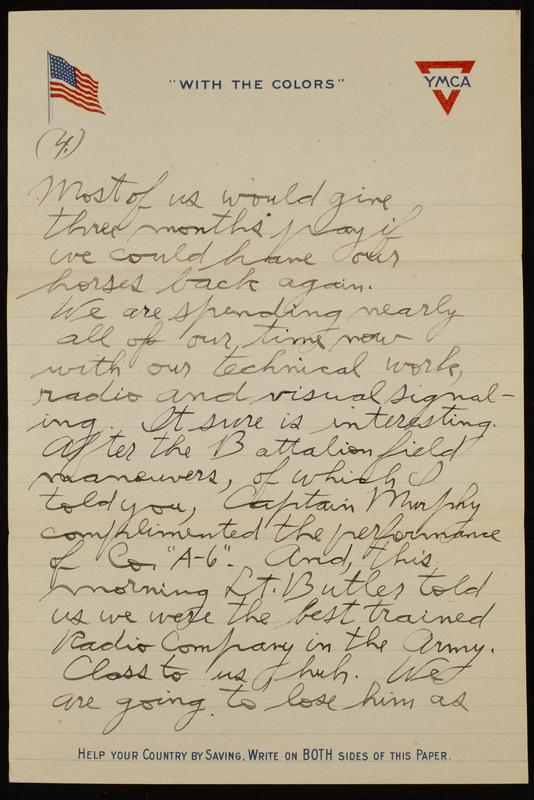 "WITH THE COLORS"
YMCA
(4.)
Most of us would give
three months' pay if
we could have our
horses back again.
We are spending nearly
all of our time now
with our technical work,
radio and visual signal-
ing. It sure is interesting.
After the Battalion field
maneuvers, of which I
told you, Captain Murphy
complimented the performance
of Co. "A-6". And, this
morning Lt. Butler told
us we were the best trained
Radio Company in the Army.
Class to us, huh. We
are going to lose him as
HELP YOUR COUNTRY BY SAVING. WRITE ON BOTH SIDES OF THIS PAPER.